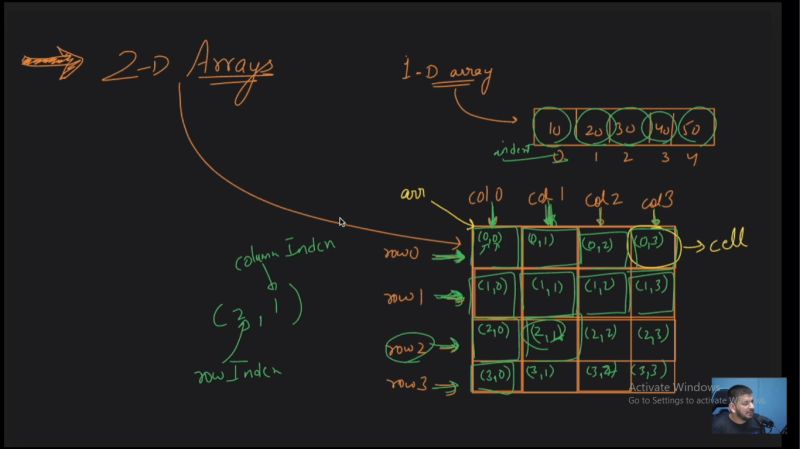 2-D Arrays
1-D array
10 20 30 40 50
index 0 1 2 3 4
arr
col 0 col 1 col 2 col3
row0 (0,0) (0,1) (0,2) (0,3) cell
row 1 (1,0) (1,1) (1,2) (1,3)
row2 (2,0) (2,1) (2,2) (2,3)
row3 (3,0) (3,1) (3,2) (3,3)
column Index
(2, 1)
row Index
Activate Windows
Go to Settings to activate Windows.